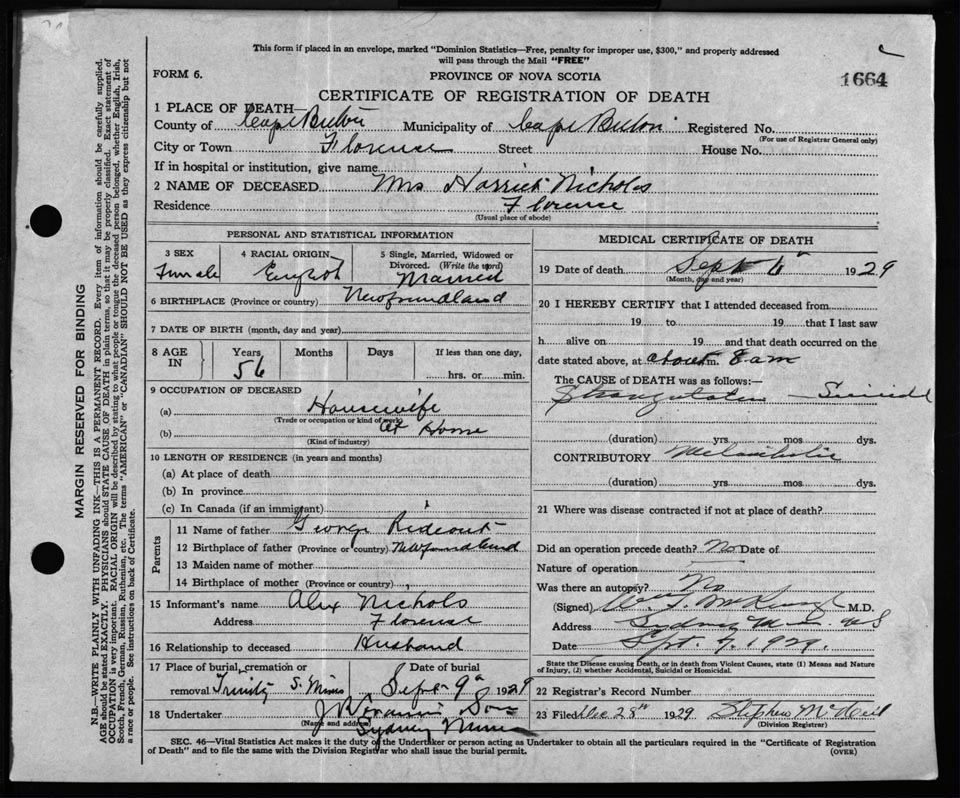 This form if placed in an envelope, marked "Dominion Statistics—Free, penalty for improper use, $300," and properly addressed
will pass through the Mail "FREE"
FORM 6.
PROVINCE OF NOVA SCOTIA
1664
CERTIFICATE OF REGISTRATION OF DEATH
1 PLACE OF DEATH—
County of Cape Breton Municipality of Cape Breton Registered No.
(For use of Registrar General only)
City or Town Florence Street House No.
If in hospital or institution, give name
2 NAME OF DECEASED Mrs Harriet Nichols
Residence Florence
(Usual place of abode)
PERSONAL AND STATISTICAL INFORMATION
3 SEX Female
4 RACIAL ORIGIN English
5 Single, Married, Widowed or Divorced. (Write the word) Married
6 BIRTHPLACE (Province or country) Newfoundland
7 DATE OF BIRTH (month, day and year)
8 AGE IN Years 56 Months Days If less than one day, hrs. or min.
9 OCCUPATION OF DECEASED
(a) Housewife
(Trade or occupation or kind of work)
(b) At Home
(Kind of industry)
10 LENGTH OF RESIDENCE (in years and months)
(a) At place of death
(b) In province
(c) In Canada (if an immigrant)
Parents
11 Name of father George Rideout
12 Birthplace of father (Province or country) Newfoundland
13 Maiden name of mother
14 Birthplace of mother (Province or country)
15 Informant's name Alex Nichols
Address Florence
16 Relationship to deceased Husband
17 Place of burial, cremation or removal Trinity S. Mines
Date of burial Sept 9 1929
18 Undertaker & Son
(Name and address) Sydney Mines
MEDICAL CERTIFICATE OF DEATH
19 Date of death Sept 6 1929
(Month, day and year)
20 I HEREBY CERTIFY that I attended deceased from
19 to 19 that I last saw
h alive on 19 and that death occurred on the
date stated above, at about 8 am m.
The CAUSE of DEATH was as follows:—
Strangulation — Suicide
(duration) yrs mos dys.
CONTRIBUTORY Melancholia
(duration) yrs mos dys.
21 Where was disease contracted if not at place of death?
Did an operation precede death? No Date of
Nature of operation
Was there an autopsy? No
(Signed) M.D.
Address Sydney M NS
Date Sept. 9, 1929.
State the Disease causing Death, or in death from Violent Causes, state (1) Means and Nature
of Injury, (2) whether Accidental, Suicidal or Homicidal.
22 Registrar's Record Number
23 Filed Dec 28th 1929 Stephen McNeil
(Division Registrar)
SEC. 46—Vital Statistics Act makes it the duty of the Undertaker or person acting as Undertaker to obtain all the particulars required in the "Certificate of Registration
of Death" and to file the same with the Division Registrar who shall issue the burial permit. (OVER)
MARGIN RESERVED FOR BINDING
N.B.—WRITE PLAINLY WITH UNFADING INK—THIS IS A PERMANENT RECORD. Every item of information should be carefully supplied.
AGE should be stated EXACTLY. PHYSICIANS should STATE CAUSE OF DEATH in plain terms, so that it may be properly classified. Exact statement of
OCCUPATION is very important. RACIAL ORIGIN will be described by stating to what people or tongue the deceased person belonged, whether English, Irish,
Scotch, French, German, Russian, Ruthenian, etc. The terms "AMERICAN" or "CANADIAN" SHOULD NOT BE USED as they express citizenship but not
a race or people. See instructions on back of Certificate.